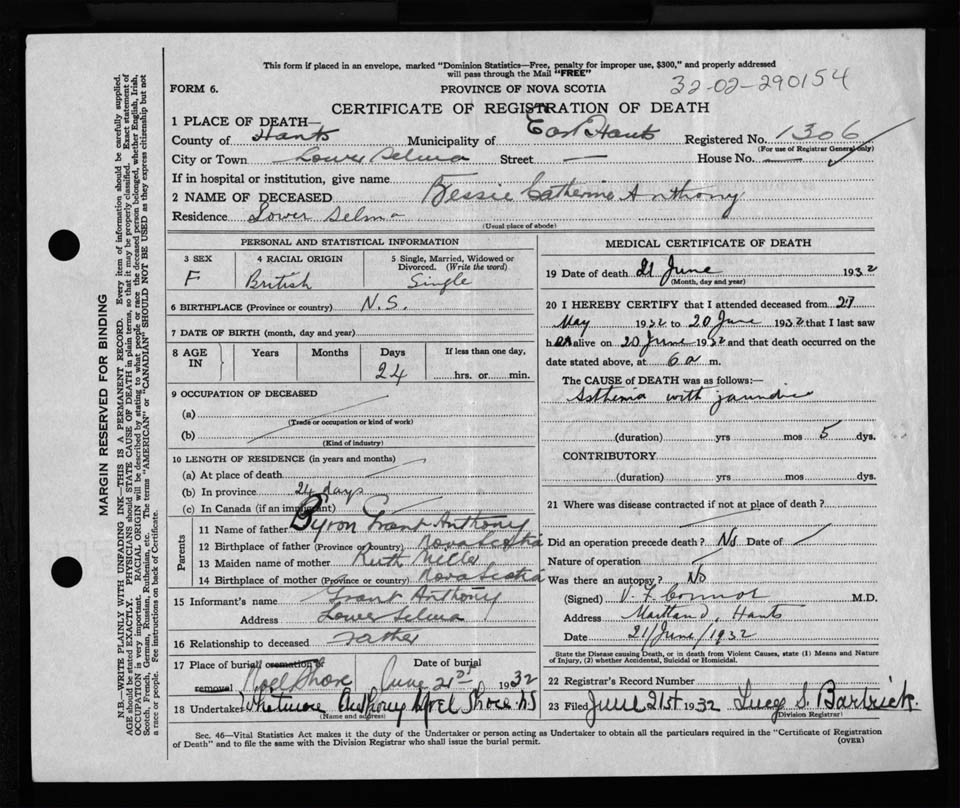 This form if placed in an envelope, marked "Dominion Statistics—Free, penalty for improper use, $300," and properly addressed
will pass through the Mail "FREE"
FORM 6.
PROVINCE OF NOVA SCOTIA
32-02-290154
CERTIFICATE OF REGISTRATION OF DEATH
1 PLACE OF DEATH—
County of Hants Municipality of East Hants Registered No. 1306
(For use of Registrar General only)
City or Town Lower Selma Street — House No.
If in hospital or institution, give name
2 NAME OF DECEASED Bessie Catherine Anthony
Residence Lower Selma
(Usual place of abode)
PERSONAL AND STATISTICAL INFORMATION
3 SEX 4 RACIAL ORIGIN 5 Single, Married, Widowed or Divorced. (Write the word)
F British Single
6 BIRTHPLACE (Province or country) N.S.
7 DATE OF BIRTH (month, day and year)
8 AGE IN Years Months Days If less than one day,
24 hrs. or min.
9 OCCUPATION OF DECEASED
(a)
(Trade or occupation or kind of work)
(b)
(Kind of industry)
10 LENGTH OF RESIDENCE (in years and months)
(a) At place of death
(b) In province 24 days
(c) In Canada (if an immigrant)
Parents
11 Name of father Byron Grant Anthony
12 Birthplace of father (Province or country) Nova Scotia
13 Maiden name of mother Ruth
14 Birthplace of mother (Province or country) Nova Scotia
15 Informant's name Grant Anthony
Address Lower Selma
16 Relationship to deceased Father
17 Place of burial cremation or removal Date of burial
Noel Shore June 21st 1932
18 Undertaker Anthony Noel Shore N.S
(Name and address)
MEDICAL CERTIFICATE OF DEATH
19 Date of death 21 June 1932
(Month, day and year)
20 I HEREBY CERTIFY that I attended deceased from 27
May 1932 to 20 June 1932 that I last saw
her alive on 20 June 1932 and that death occurred on the
date stated above, at 6 a m.
The CAUSE OF DEATH was as follows:—
Asthenia with jaundice
(duration) yrs mos 5 dys.
CONTRIBUTORY
(duration) yrs mos dys.
21 Where was disease contracted if not at place of death?
Did an operation precede death? No Date of
Nature of operation
Was there an autopsy? No
(Signed) M.D.
Address Maitland, Hants
Date 21/June/1932
State the Disease causing Death, or in death from Violent Causes, state (1) Means and
Nature of Injury, (2) whether Accidental, Suicidal or Homicidal.
22 Registrar's Record Number
23 Filed June 21st 1932 Lucy S. Bartrick.
Division Registrar)
Sec. 46—Vital Statistics Act makes it the duty of the Undertaker or person acting as Undertaker to obtain all the particulars required in the "Certificate of Registration
of Death" and to file the same with the Division Registrar who shall issue the burial permit.
(OVER)
MARGIN RESERVED FOR BINDING
N.B.—WRITE PLAINLY WITH UNFADING INK—THIS IS A PERMANENT RECORD. Every item of information should be carefully supplied.
AGE should be stated EXACTLY. PHYSICIANS should STATE CAUSE OF DEATH in plain terms, so that it may be properly classified. Exact statement of
OCCUPATION is very important. RACIAL ORIGIN will be described by stating to what people or race the deceased person belonged, whether English, Irish,
Scotch, French, German, Russian, Ruthenian, etc. The terms "AMERICAN" or "CANADIAN" SHOULD NOT BE USED as they express citizenship but not
a race or people. Fee instructions on back of Certificate.